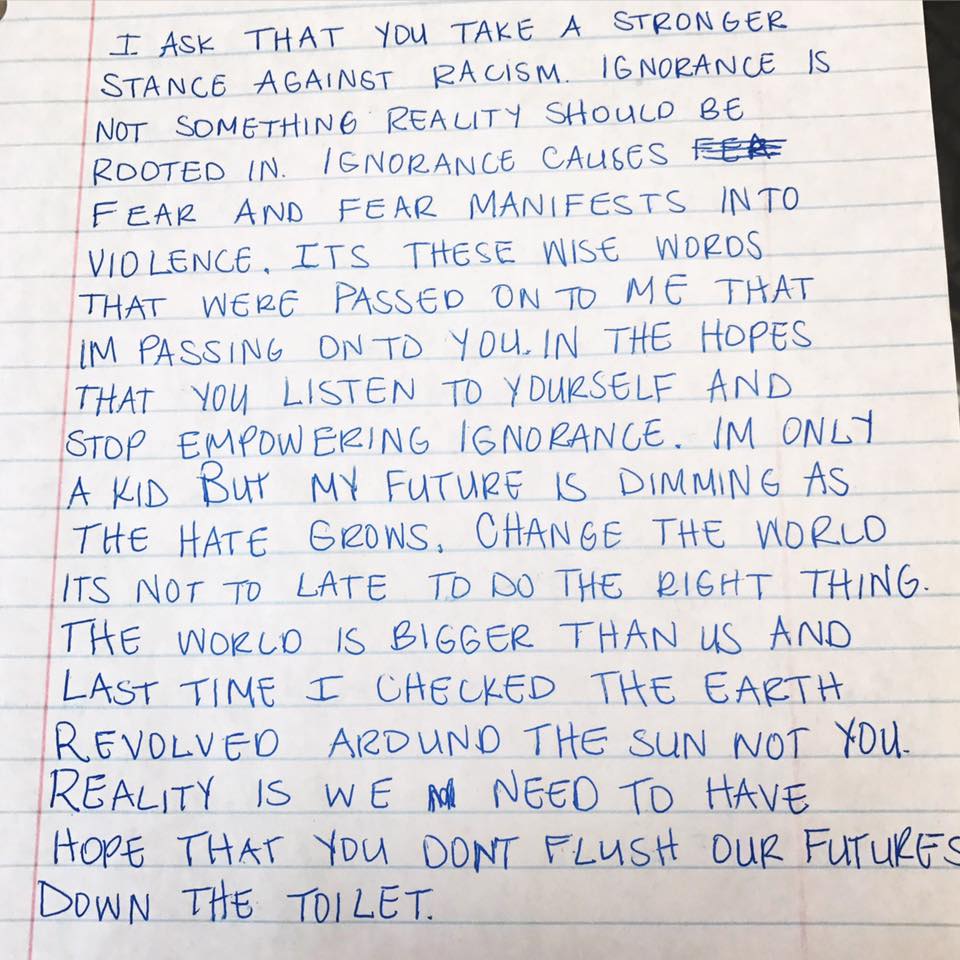 I ASK THAT YOU TAKE A STRONGER
STANCE AGAINST RACISM. IGNORANCE IS
NOT SOMETHING REALITY SHOULD BE
ROOTED IN. IGNORANCE CAUSES FEA
FEAR AND FEAR MANIFESTS INTO
VIOLENCE. ITS THESE WISE WORDS
THAT WERE PASSED ON TO ME THAT
IM PASSING ONTO YOU. IN THE HOPES
THAT YOU LISTEN TO YOURSELF AND
STOP EMPOWERING IGNORANCE. IM ONLY
A KID BUT MY FUTURE IS DIMMING AS
THE HATE GROWS. CHANGE THE WORLD
ITS NOT TO LATE TO DO THE RIGHT THING.
THE WORLD IS BIGGER THAN US AND
LAST TIME I CHECKED THE EARTH
REVOLVED AROUND THE SUN NOT YOU.
REALITY IS WE NEED TO HAVE
HOPE THAT YOU DONT FLUSH OUR FUTURES
DOWN THE TOILET.